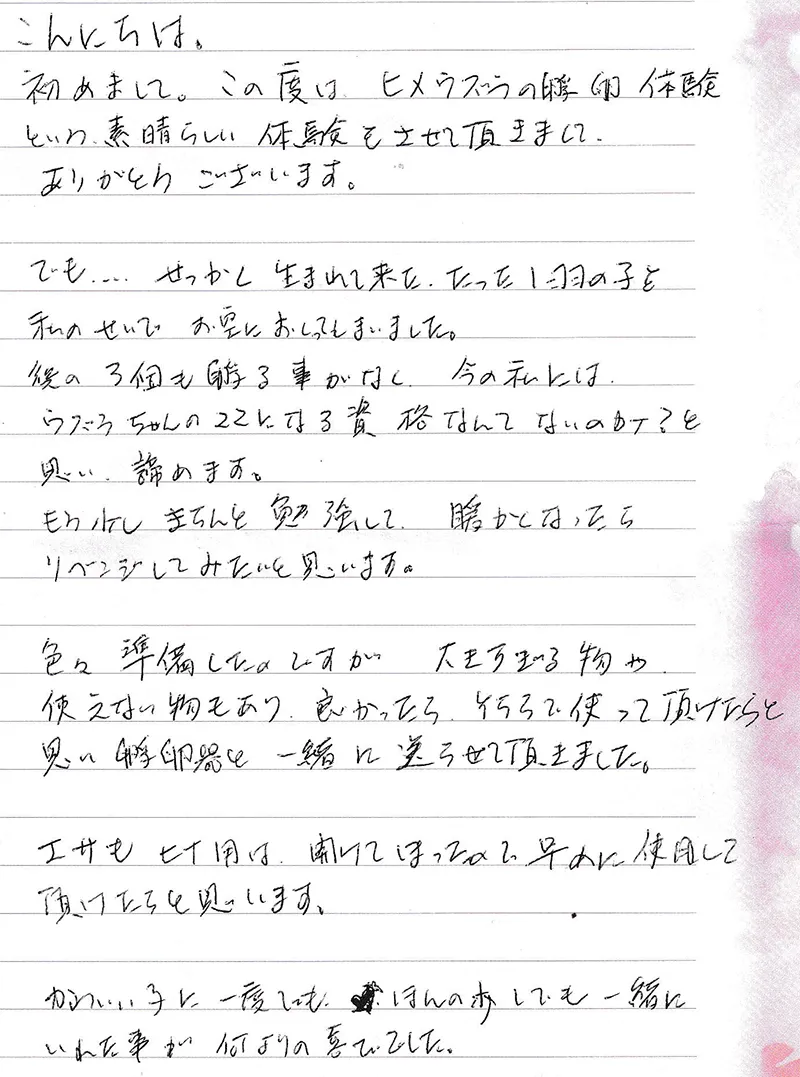 こんにちは。
初めまして。この度は、ヒメウズラの孵卵体験
という、素晴らしい体験をさせて頂きまして、
ありがとうございます。
でも.... せっかく生まれて来た、たった1羽の子を
私のせいで お空におしてしまいました。
後の3個も孵る事がなく、今の私には、
ウズラちゃんのママになる資格なんてないのカナ?と
思い、諦めます。
もう少しきちんと勉強して、暖かくなったら
リベンジしてみたいと思います。
色々準備したのですが 大きすぎる物や、
使えない物もあり、良かったら、そちらで使って頂けたらと
思い孵卵器と一緒に送らせて頂きました。
エサもヒナ用は、開けてしまったので、早めに使用して
頂けたらと思います。
かわいい子に一度でも、ほんの少しでも一緒に
いれた事が何よりの喜びでした。